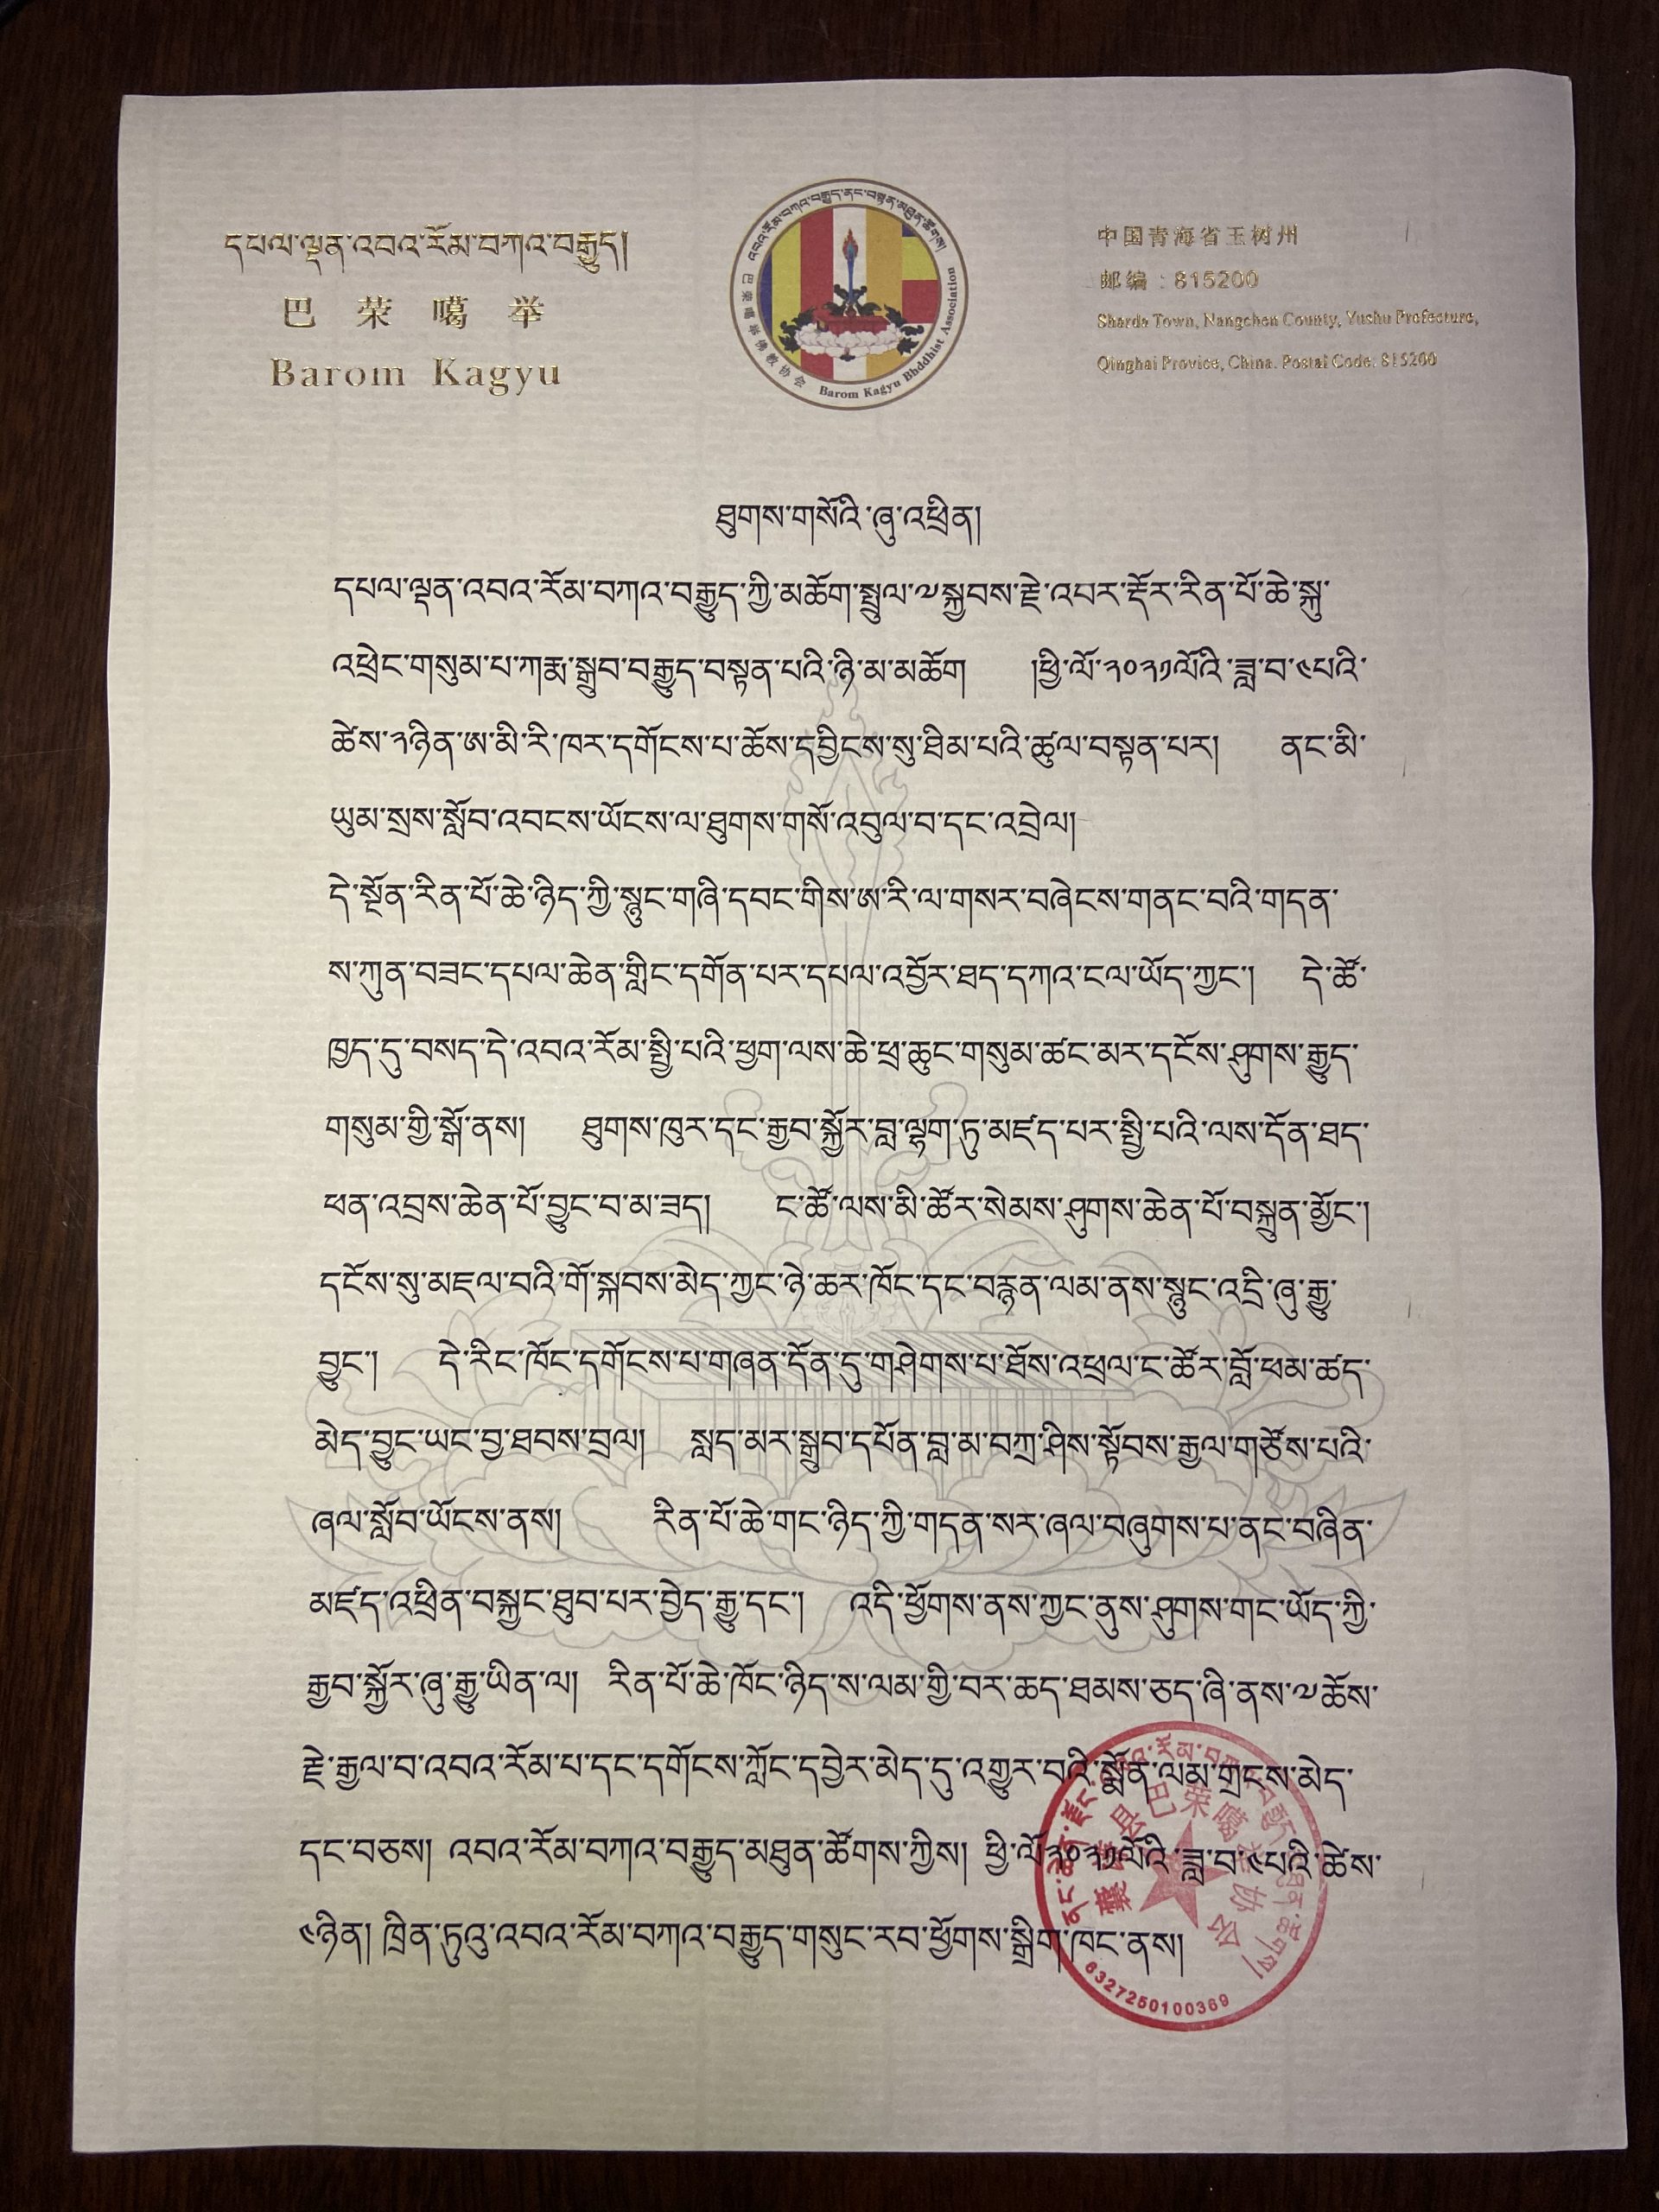 དཔལ་ལྡན་འབའ་རོམ་བཀའ་བརྒྱུད།
巴荣噶举
Barom Kagyu
འབའ་རོམ་བཀའ་བརྒྱུད་ནང་བསྟན་མཐུན་ཚོགས།
巴荣噶举佛教协会
Barom Kagyu Bhddhist Association
中国青海省玉树州
邮编：815200
Sharda Town, Nangchen County, Yushu Prefecture,
Qinghai Provice, China. Postal Code: 815200
ཐུགས་གསོའི་ཞུ་འཕྲིན།
དཔལ་ལྡན་འབའ་རོམ་བཀའ་བརྒྱུད་ཀྱི་མཆོག་སྤྲུལ་༧སྐྱབས་རྗེ་འབར་རྡོར་རིན་པོ་ཆེ་སྐུ་
འཕྲེང་གསུམ་པ་ཀརྨ་སྒྲུབ་བརྒྱུད་བསྟན་པའི་ཉི་མ་མཆོག །ཕྱི་ལོ་༢༠༢༡ལོའི་ཟླ་བ་༤པའི་
ཚེས་༢ཉིན་ཨ་མི་རི་ཁར་དགོངས་པ་ཆོས་དབྱིངས་སུ་ཐིམ་པའི་ཚུལ་བསྟན་པར། ནང་མི་
ཡུམ་སྲས་སློབ་འབངས་ཡོངས་ལ་ཐུགས་གསོ་འབུལ་བ་དང་འབྲེལ།
དེ་སྔོན་རིན་པོ་ཆེ་ཉིད་ཀྱི་སྙུང་གཞི་དབང་གིས་ཨ་རི་ལ་གསར་བཞེངས་གནང་བའི་གདན་
ས་ཀུན་བཟང་དཔལ་ཆེན་གླིང་དགོན་པར་དཔལ་འབྱོར་ཐད་དཀའ་ངལ་ཡོད་ཀྱང་། དེ་ཚོ་
ཁྱད་དུ་བསད་དེ་འབའ་རོམ་སྤྱི་པའི་ཕྱག་ལས་ཆེ་ཕྲ་ཆུང་གསུམ་ཚང་མར་དངོས་ཤུགས་རྒྱུད་
གསུམ་གྱི་སྒོ་ནས། ཐུགས་ཁུར་དང་རྒྱབ་སྐྱོར་བླ་ལྷག་ཏུ་མཛད་པར་སྤྱི་པའི་ལས་དོན་ཐད་
ཕན་འབྲས་ཆེན་པོ་བྱུང་བ་མ་ཟད། ང་ཚོ་ལས་མི་ཚོར་སེམས་ཤུགས་ཆེན་པོ་བསྐྲུན་མྱོང་།
དངོས་སུ་མཇལ་བའི་གོ་སྐབས་མེད་ཀྱང་ཉེ་ཆར་ཁོང་དང་བརྙན་ལམ་ནས་སྙུང་འདྲི་ཞུ་རྒྱུ་
བྱུང་། དེ་རིང་ཁོང་དགོངས་པ་གཞན་དོན་དུ་གཤེགས་པ་ཐོས་འཕྲལ་ང་ཚོར་བློ་ཕམ་ཚད་
མེད་བྱུང་ཡང་བྱ་ཐབས་བྲལ། སླད་མར་སྒྲུབ་དཔོན་བླ་མ་བཀྲ་ཤིས་སྟོབས་རྒྱལ་གཙོས་པའི་
ཞལ་སློབ་ཡོངས་ནས། རིན་པོ་ཆེ་གང་ཉིད་ཀྱི་གདན་སར་ཞལ་བཞུགས་པ་ནང་བཞིན་
མཛད་འཕྲིན་བསྐྱང་ཐུབ་པར་བྱེད་རྒྱུ་དང་། འདི་ཕྱོགས་ནས་ཀྱང་ནུས་ཤུགས་གང་ཡོད་ཀྱི་
རྒྱབ་སྐྱོར་ཞུ་རྒྱུ་ཡིན་ལ། རིན་པོ་ཆེ་ཁོང་ཉིད་ས་ལམ་གྱི་བར་ཆད་ཐམས་ཅད་ཞི་ནས་༧ཆོས་
རྗེ་རྒྱལ་བ་འབའ་རོམ་པ་དང་དགོངས་ཀློང་དབྱེར་མེད་དུ་འགྱུར་བའི་སྨོན་ལམ་གྲངས་མེད་
དང་བཅས། འབའ་རོམ་བཀའ་བརྒྱུད་མཐུན་ཚོགས་ཀྱིས། ཕྱི་ལོ་༢༠༢༡ལོའི་ཟླ་བ་༤པའི་ཚེས་
༤ཉིན། ཁྲིན་ཏུའུ་འབའ་རོམ་བཀའ་བརྒྱུད་གསུང་རབ་ཕྱོགས་སྒྲིག་ཁང་ནས།
6327250100369